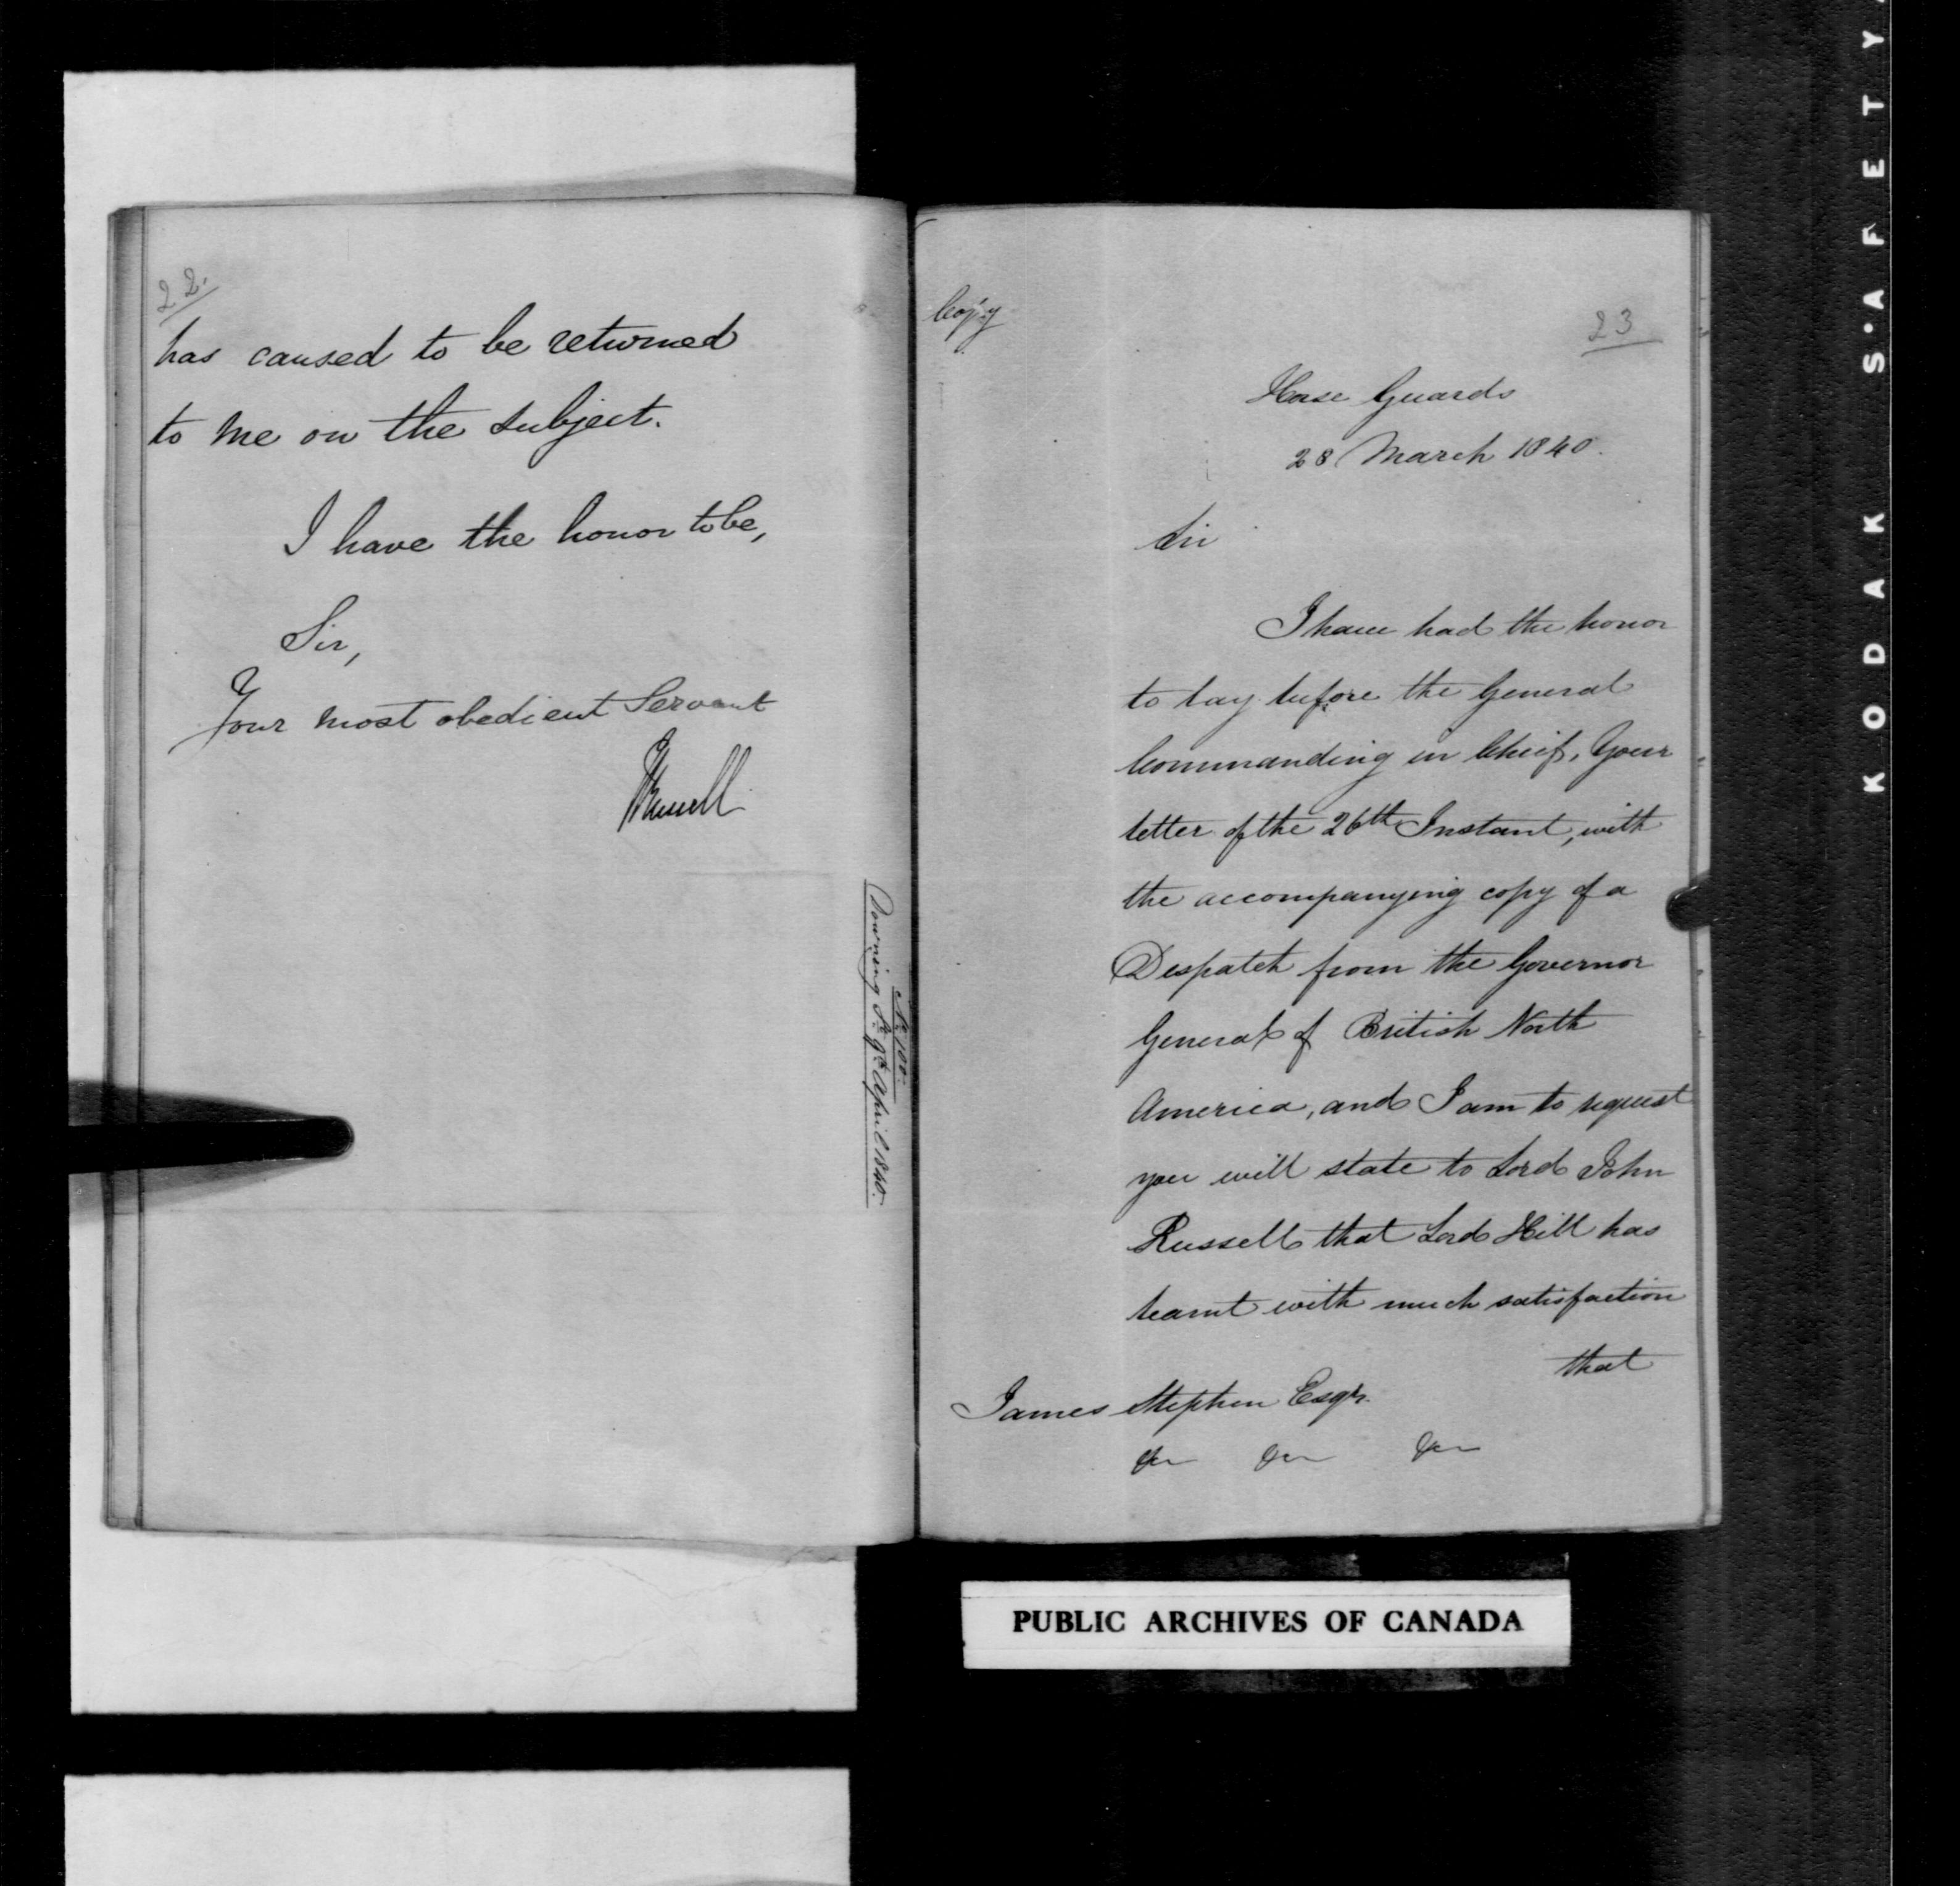 22.
has caused to be returned
to me on the subject.
I have the honor to be,
Sir,
Your most obedient Servant
JRussell
No 100.
Downing St 9th April 1840.
Copy
23
Horse Guards
28 March 1840.
Sir
I have had the honor
to lay before the General
Commanding in Chief, Your
letter of the 26th Instant, with
the accompanying copy of a
Despatch from the Governor
General of British North
America, and I am to request
you will state to Lord John
Russell that Lord Hill has
learnt with much satisfaction
that
James Stephen Esqr.
&c &c &c
PUBLIC ARCHIVES OF CANADA
KODAK S.AFETY